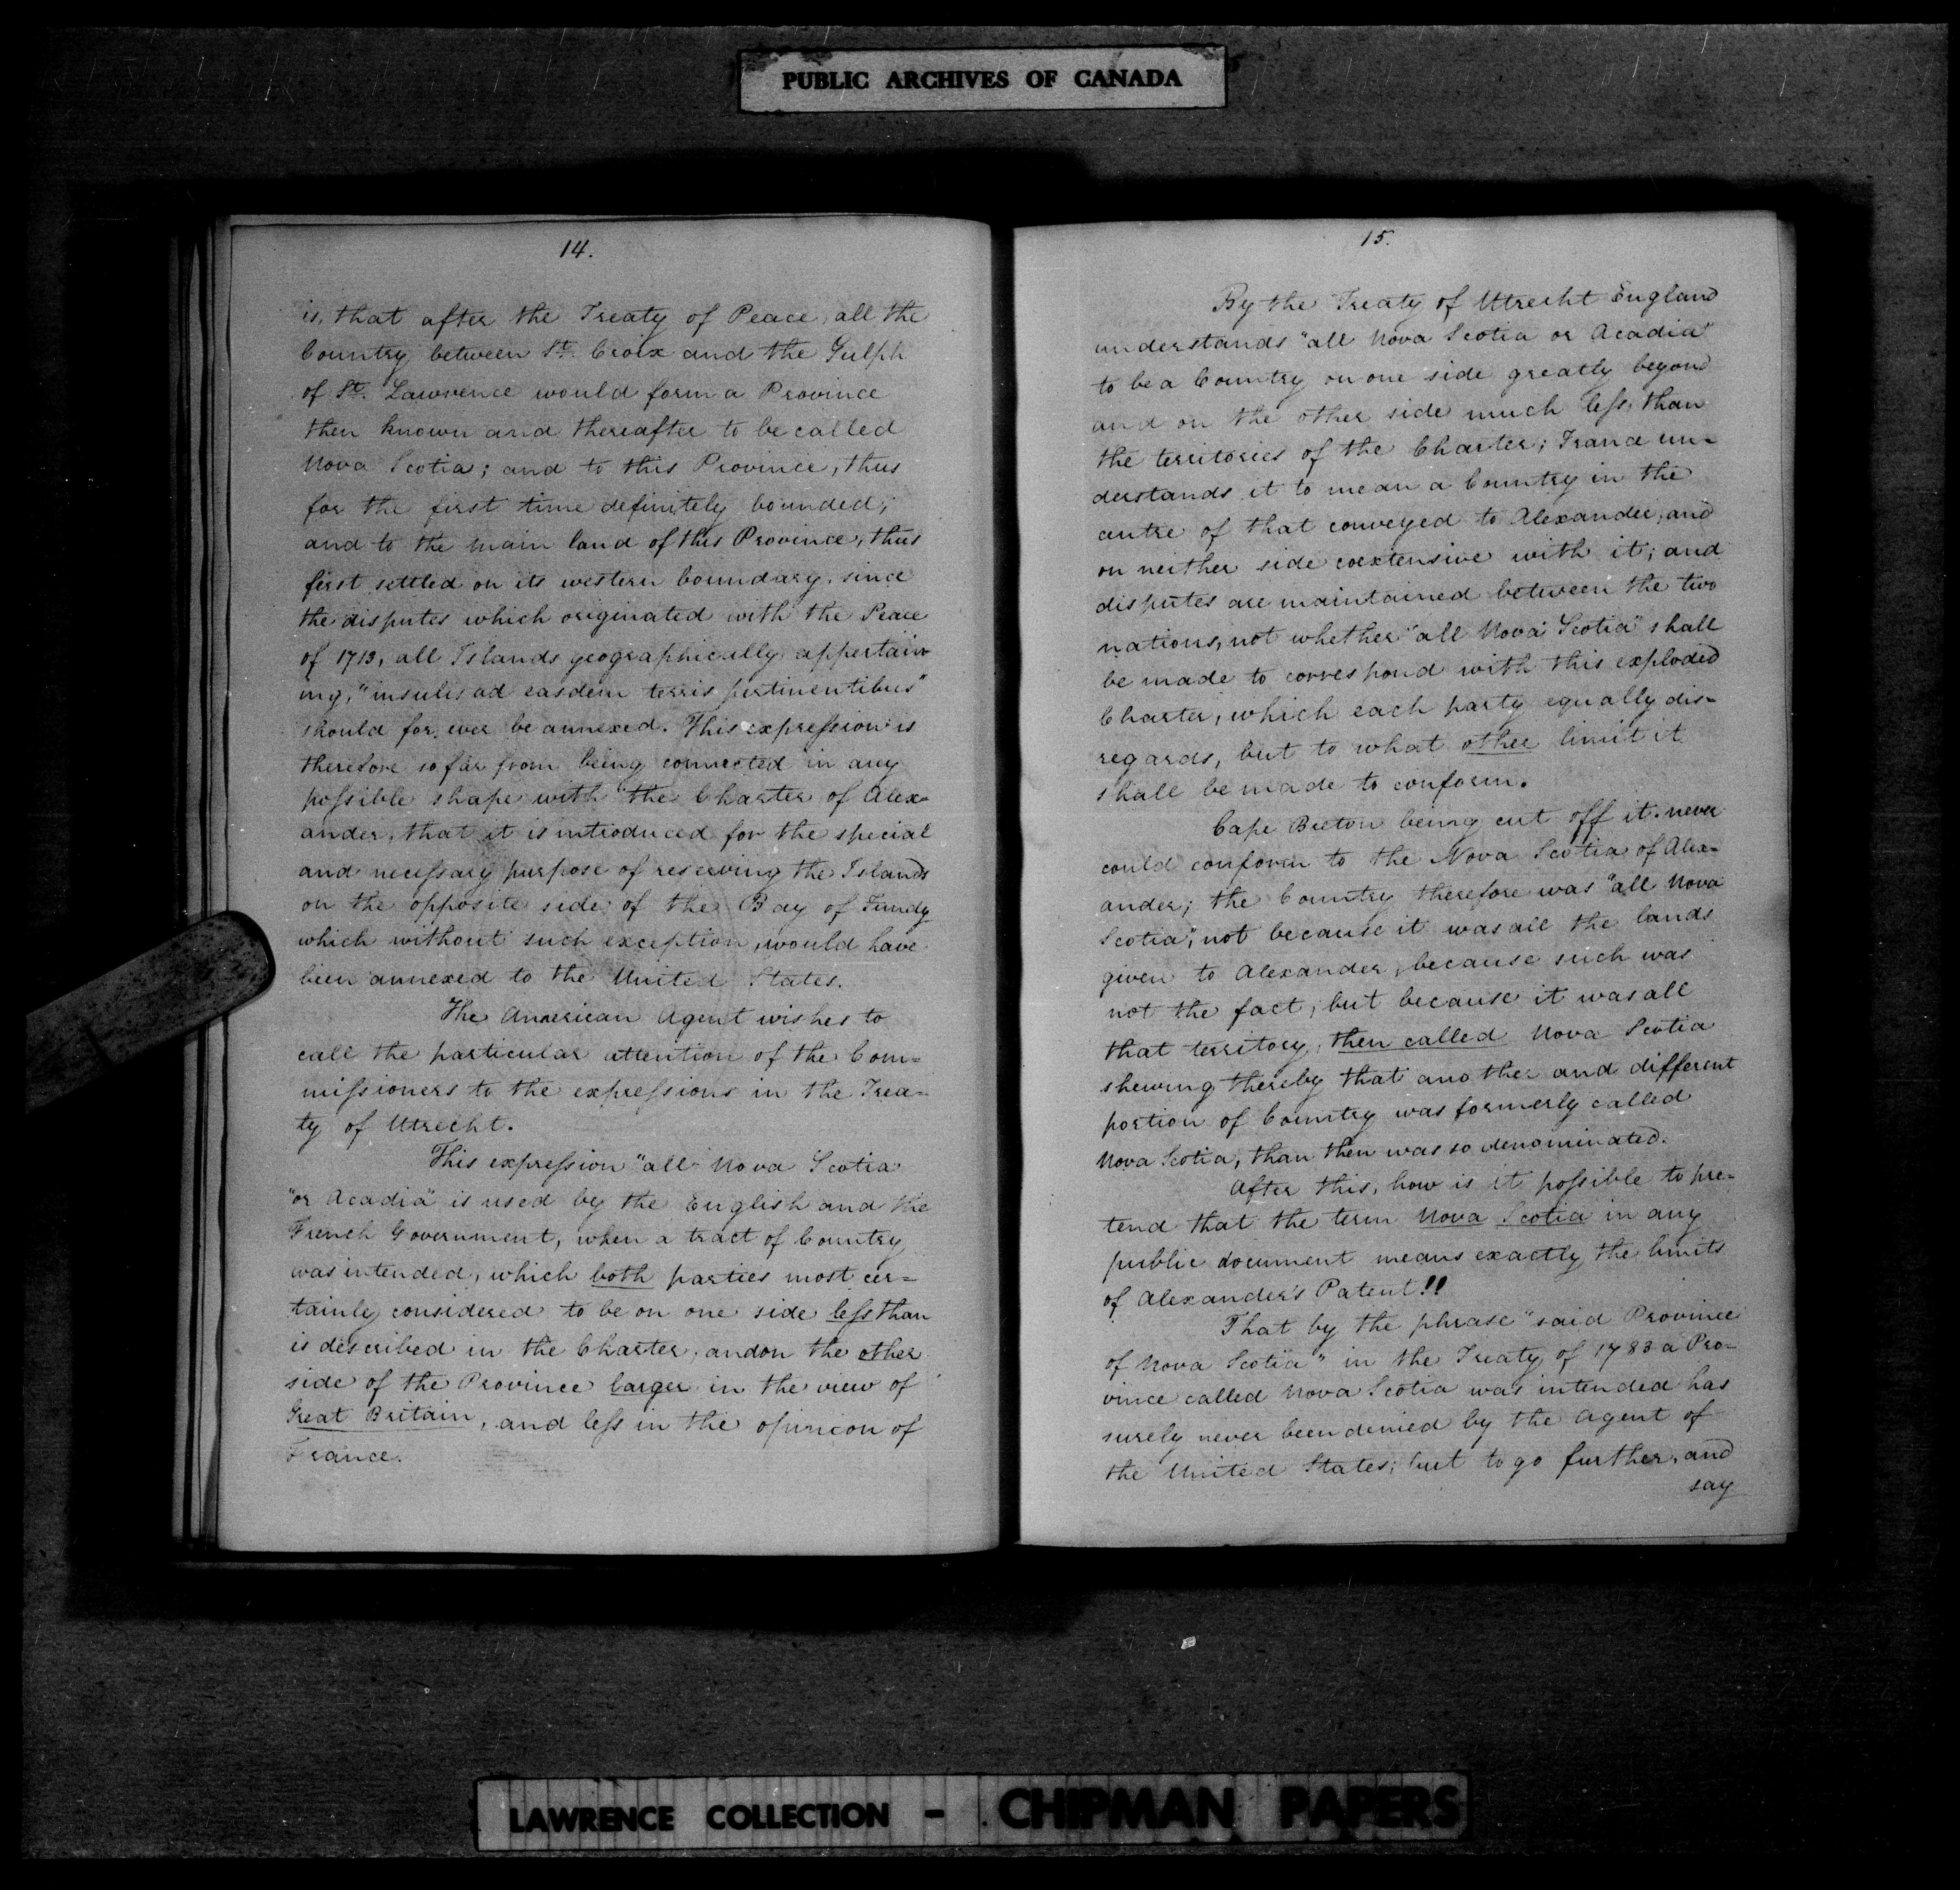 PUBLIC ARCHIVES OF CANADA
14.
is, that after the Treaty of Peace, all the
Country between St. Croix and the Gulph
of St. Lawrence would form a Province
then known and thereafter to be called
Nova Scotia; and to this Province, thus
for the first time definitely bounded,
and to the main land of this Province, thus
first settled on its western boundary, since
the disputes which originated with the Peace
of 1713, all Islands geographically appertain
ing, "insulis ad easdem terris pertinentibus"
should for ever be annexed. This expression is
therefore so far from being connected in any
possible shape with the Charter of Alex-
ander, that it is introduced for the special
and necessary purpose of reserving the Islands
on the opposite side of the Bay of Fundy
which without such exception, would have
been annexed to the United States.
The American Agent wishes to
call the particular attention of the Com=
missioners to the expressions in the Trea-
ty of Utrecht.
This expression "all Nova Scotia
"or Acadia" is used by the English and the
French Government, when a tract of Country
was intended, which both parties most cer=
tainly considered to be on one side less than
is described in the Charter, and on the other
side of the Province larger in the view of
Great Britain, and less in the opinion of
France.
15.
By the Treaty of Utrecht England
understands "all Nova Scotia or Acadia"
to be a Country on one side greatly beyond
and on the other side much less than
the territories of the Charter; France un=
derstands it to mean a Country in the
centre of that conveyed to Alexander, and
on neither side coextensive with it; and
disputes are maintained between the two
nations, not whether "all Nova Scotia" shall
be made to correspond with this exploded
Charter, which each party equally dis=
regards, but to what other limit it
shall be made to conform.
Cape Breton being cut off it never
could conform to the Nova Scotia of Alex=
ander; the Country therefore was "all Nova
Scotia", not because it was all the lands
given to Alexander, because such was
not the fact, but because it was all
that territory, then called Nova Scotia
shewing thereby that another and different
portion of Country was formerly called
Nova Scotia, than then was so denominated.
After this, how is it possible to pre=
tend that the term Nova Scotia in any
public document means exactly the limits
of Alexander's Patent!!
That by the phrase "said Province
of Nova Scotia" in the Treaty of 1783 a Pro-
vince called Nova Scotia was intended has
surely never been denied by the Agent of
the United States; but to go further, and
say
LAWRENCE COLLECTION - CHIPMAN PAPERS